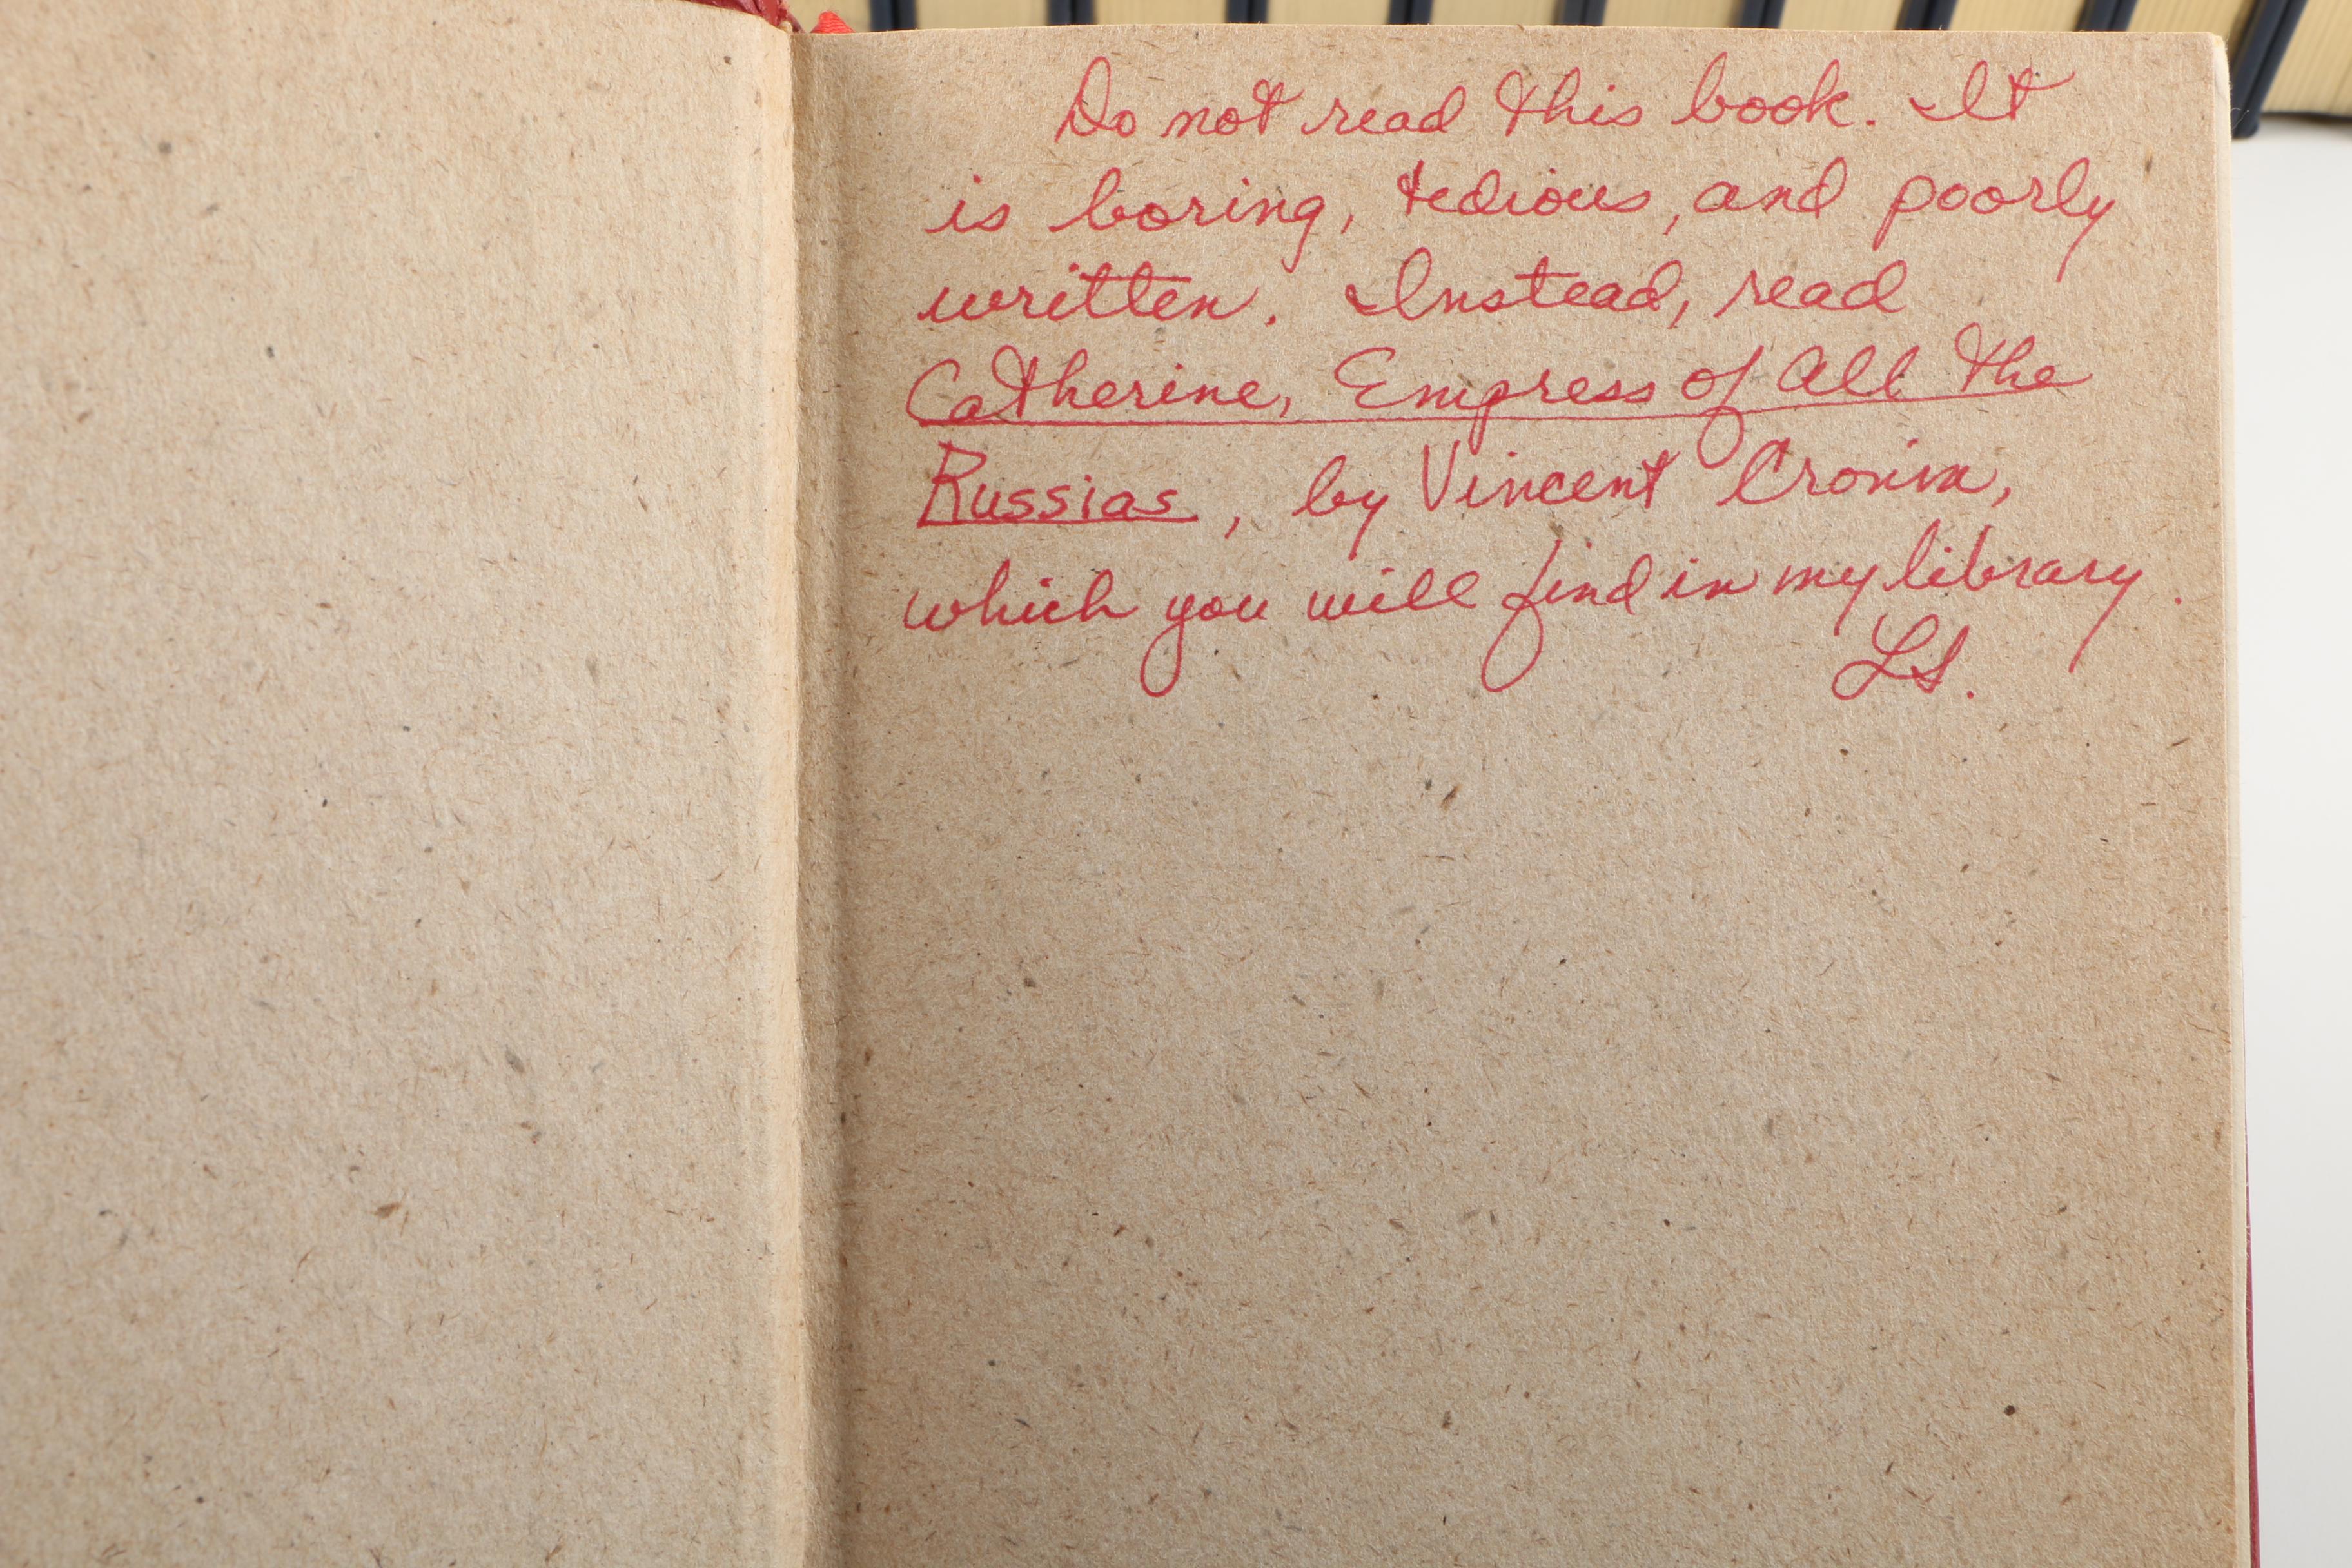 Do not read this book. It
is boring, tedious, and poorly
written. Instead, read
Catherine, Empress of All the
Russias, by Vincent Cronin,
which you will find in my library.
LS.